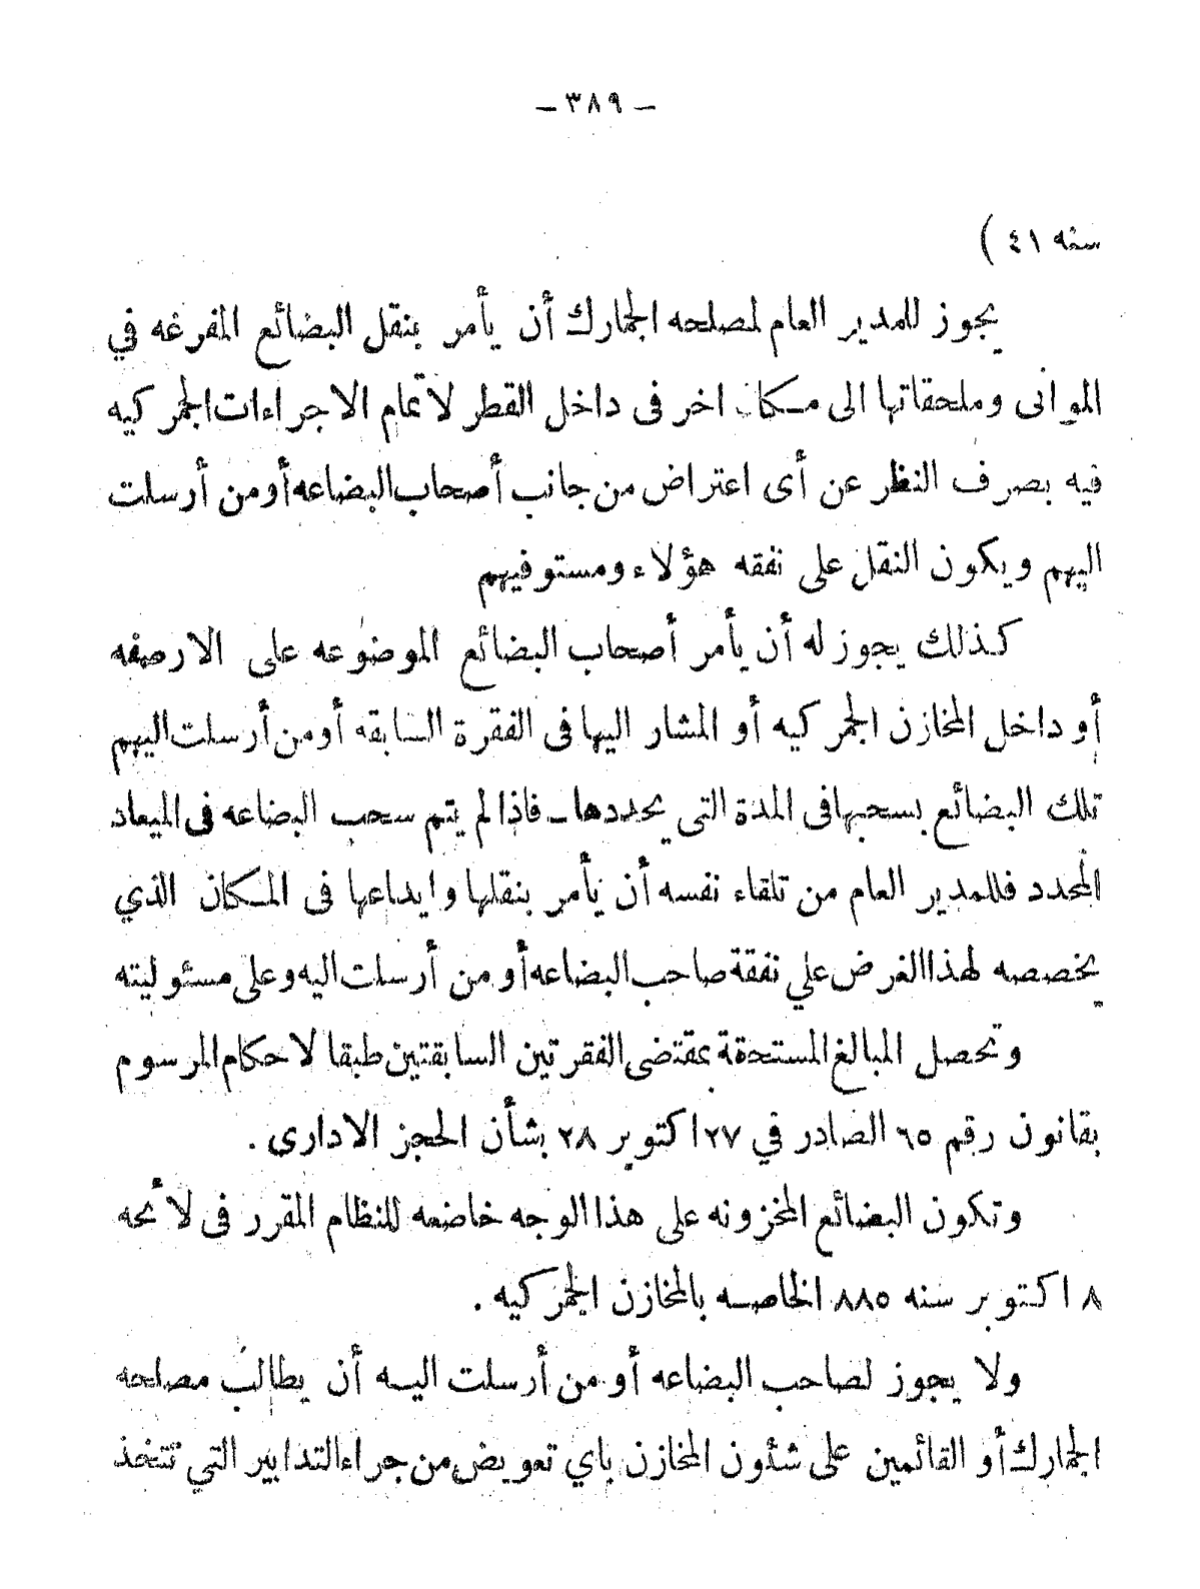 — ٣٨٩ —
سنه ٤١ )
يجوز للمدير العام لمصلحه الجمارك أن يأمر بنقل البضائع المفرغه في
الموانى وملحقاتها الى مكان اخر فى داخل القطر لاتمام الاجراءات الجمركيه
فيه بصرف النظر عن أى اعتراض من جانب أصحاب البضاعه أو من أرسلت
اليهم ويكون النقل على نفقه هؤلاء ومستوفيهم
كذلك يجوز له أن يأمر أصحاب البضائع الموضوعه على الارصفه
أو داخل المخازن الجمركيه أو المشار اليها فى الفقرة السابقه أو من أرسلت اليهم
تلك البضائع بسحبها فى المدة التى يحددها ـ فاذا لم يتم سحب البضاعه فى الميعاد
المحدد فللمدير العام من تلقاء نفسه أن يأمر بنقلها وايداعها فى المكان الذي
يخصصه لهذا الغرض علي نفقة صاحب البضاعه أو من أرسلت اليه وعلى مسئوليته
وتحصل المبالغ المستحقة بمقتضى الفقرتين السابقتين طبقا لاحكام المرسوم
بقانون رقم ٦٥ الصادر في ٢٧ اكتوبر ٢٨ بشأن الحجز الادارى .
وتكون البضائع المخزونه على هذا الوجه خاضعه للنظام المقرر فى لائحه
٨ اكتوبر سنه ٨٨٥ الخاصه بالمخازن الجمركيه .
ولا يجوز لصاحب البضاعه أو من أرسلت اليه أن يطالب مصلحه
الجمارك أو القائمين على شئون المخازن باي تعويض من جراء التدابير التي تتخذ